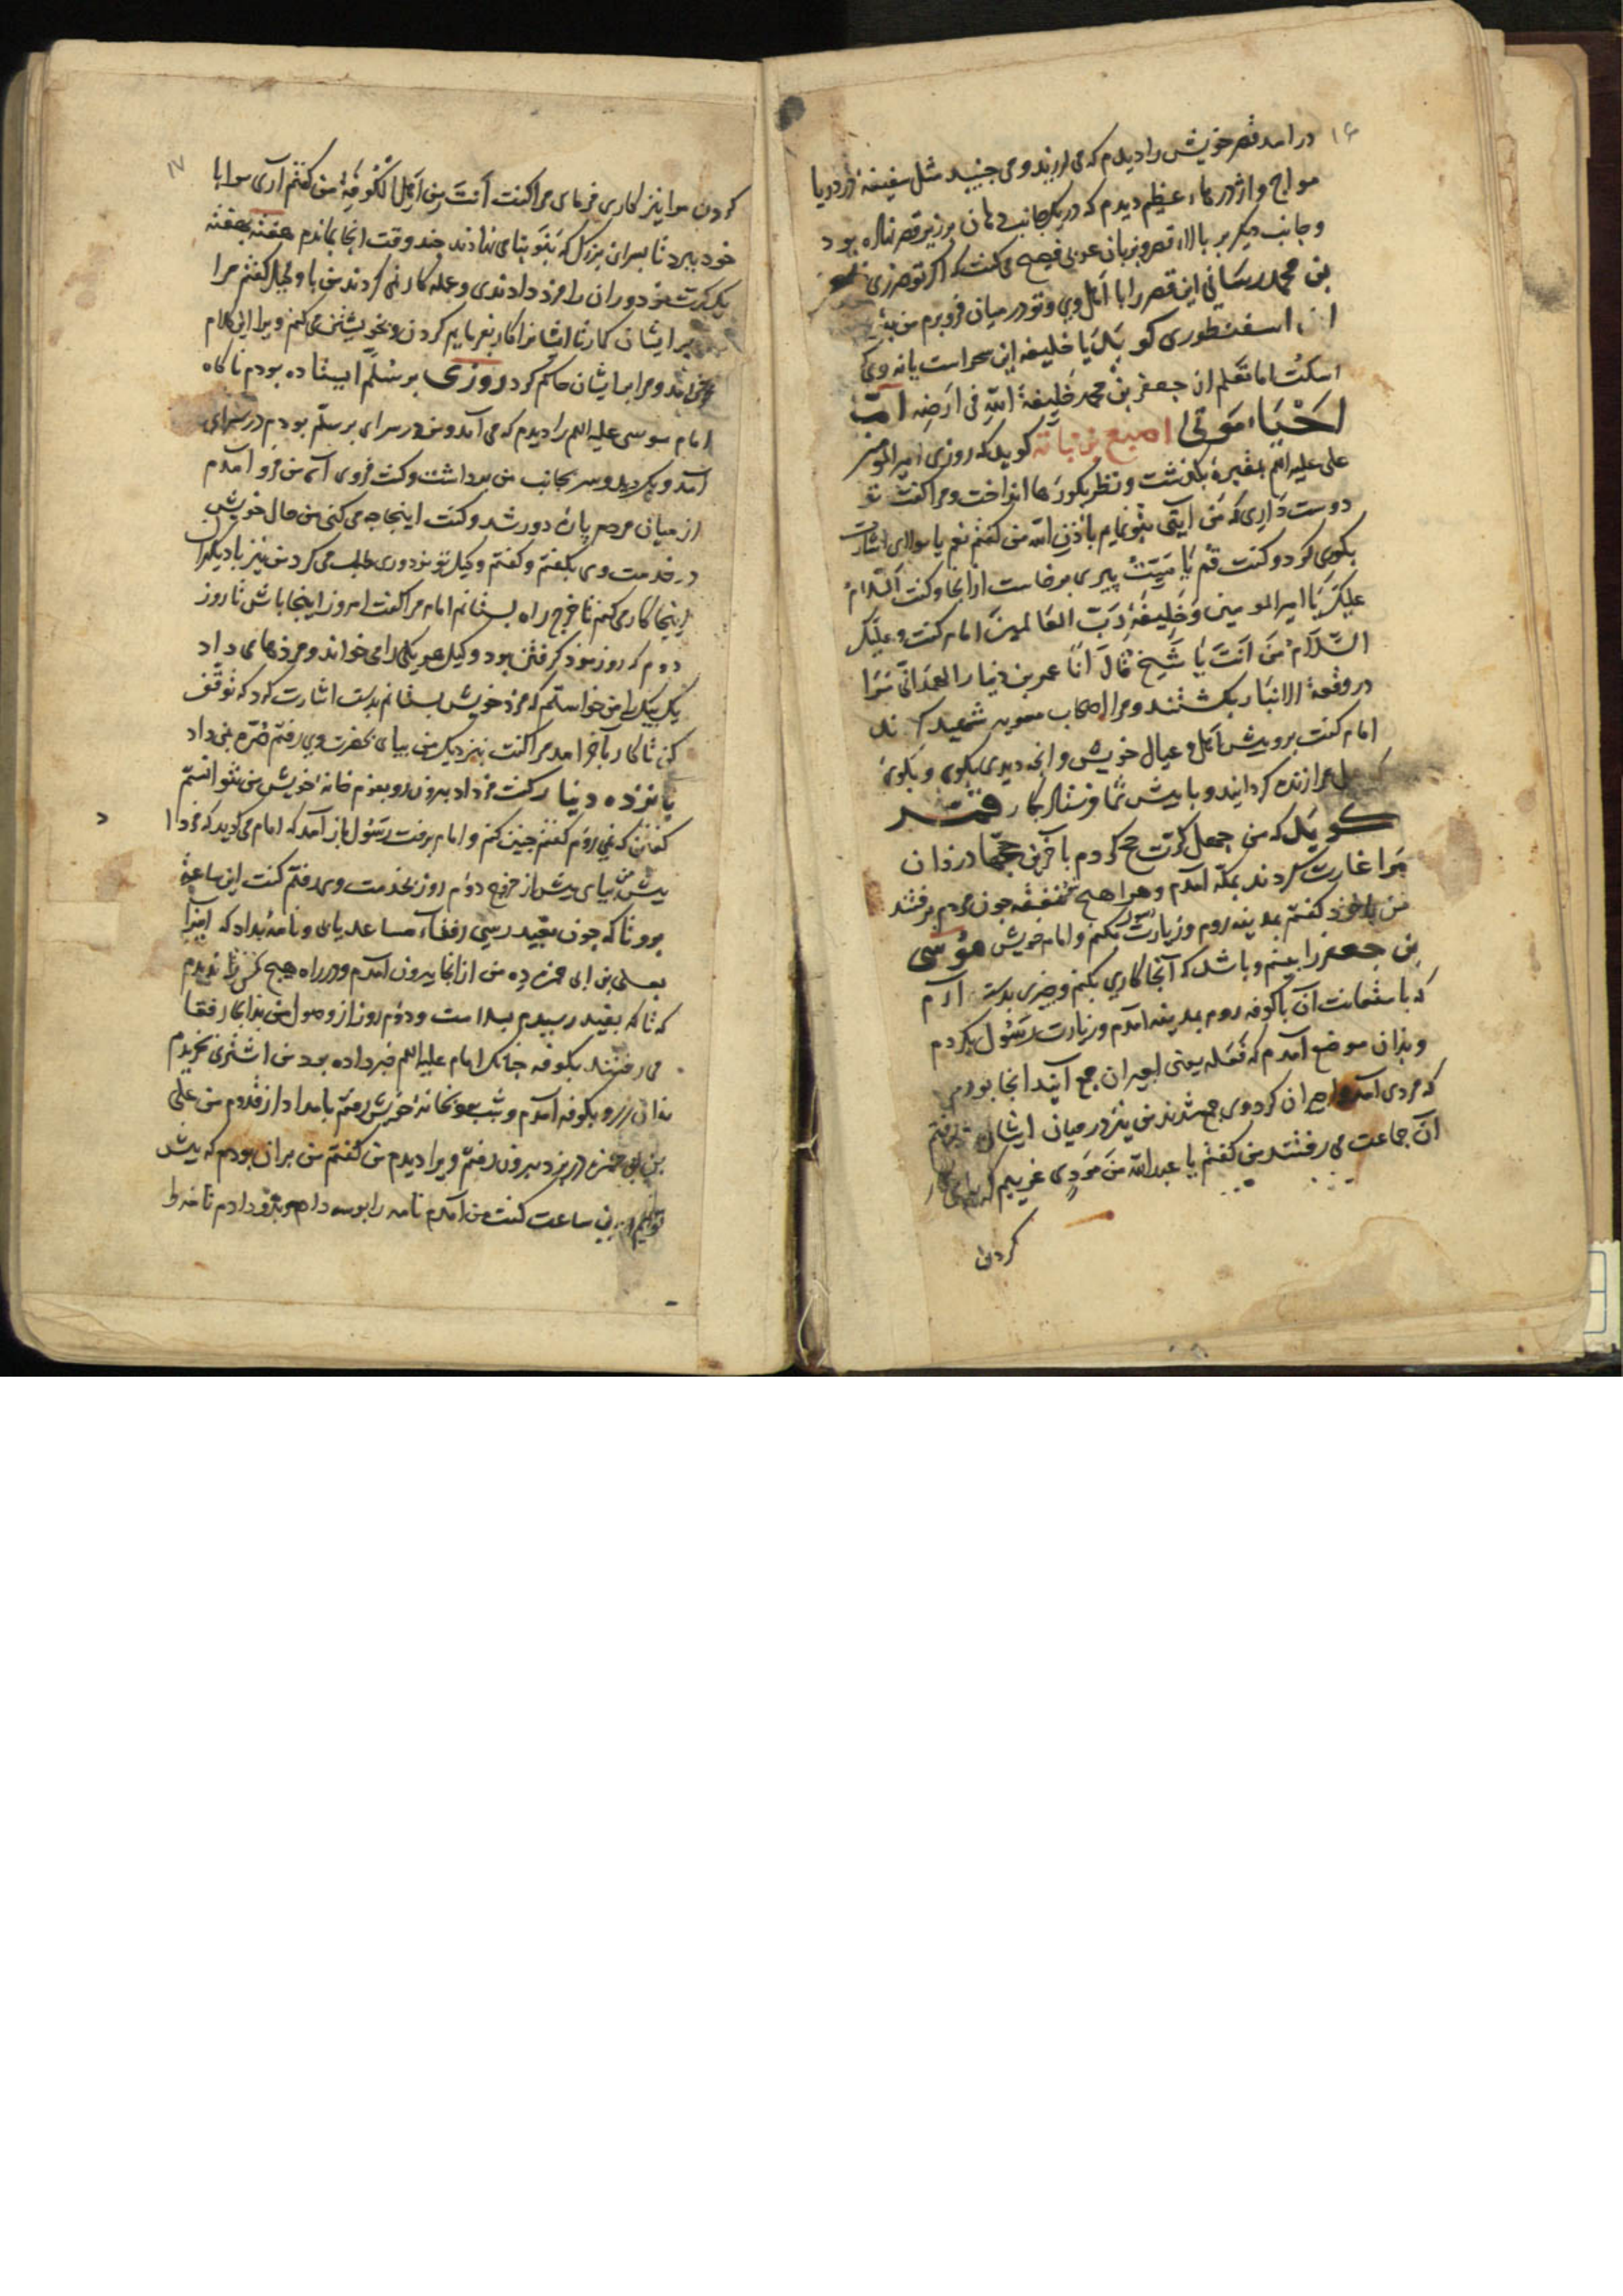 ۱۶
در امد قصر خویش را دیدم که می لرزید و می جنبید مثل سفینه در دریا
مواج و اژدرهاء عظیم دیدم که در یک جانب دهان بر زیر قصر نهاده بود
و جانب دیکر بر بالاء قصر و بزبان عربی فصیح می کفت که اکر تو ضرری
بن محمد رسانی این قصر را با اهل وی و تو در میان فرو برم من
اسفنطوری کوید یا خلیفه این سحر است یا نه وی
اسکت اما تعلم ان جعفر بن محمد خلیفة الله فی ارضه
احیاء موتی اصبغ بن نباته کوید که روزی امیر المومنین
علی علیه السلم بمقبرۀ بکذشت و نظر بکورها انداخت و مرا کفت تو
دوست داری که من آیتی بتو نمایم باذن الله من کفتم نعم یا مولای اشارت
بکوری کرد و کفت قم یا میت پیری برخاست از انجا و کفت السلام
علیک یا امیر المومنین و خلیفة رب العالمین امام کفت و علیک
السلام من انت یا شیخ قال انا عمر بن دینار الهمدانی مرا
در وقعة الانبار بکشتند و مرا اصحاب معویه شهید کردند
امام کفت برو پیش اهل و عیال خویش و انچه دیدی بکوی و بکوی
مرا زنده کردانید و با پیش شما فرستاد
کوید که من چهل کرت حج کردم باخرین حجها دزدان
مرا غارت کردند بمکه امدم و همراه هیچ نفقه چون مردم برفتند
من با خود کفتم بمدینه روم و زیارت رسول بکنم و امام خویش موسی
بن جعفر را ببینم و باشد که آنجا کاری بکنم و چیزی بدست آرم
که باستعانت آن با کوفه روم بمدینه امدم و زیارت رسول بکردم
و بدان موضع آمدم که فعله یعنی اجیران جمع آیند انجا بودم
که مردی آمد و اجیران کرد وی جمع شدند من نیز در میان ایشان
آن جماعت می رفتند من کفتم یا عبد الله من مردی غریبم
کردن
۱۷
کردن مرا نیز کاری فرمای مرا کفت أنت من أهل الکوفة من کفتم آری مرا با
خود ببرد تا بسرای بزرک که بنو بنا می نهادند چند وقت انجا بماندم هفته بهفته
یک کرت مزدوران را مزد دادندی و عمله کار نمی کردند من با وکیل کفتم مرا
بر ایشان کمار تا ایشانرا کار بفرمایم کردن و بخویشتن می کنم ویرا این کلام
خوش امد و مرا بر ایشان حاکم کرد روزی بر سلم ایستاده بودم ناکاه
امام موسی علیه السلم را دیدم که می آمد و من در سرای بر سلم بودم در سرای
آمد و بکردید و سر بجانب من برداشت و کفت فروی آی من فرو آمدم
از میان مردم پارۀ دور شد و کفت اینجا چه می کنی من حال خویش
در خدمت وی بکفتم و کفتم وکیل تو مزدوری طلب می کرد من نیز با دیکران
اینجا کار می کنم تا خرج راه بستانم امام مرا کفت امروز اینجا باش تا روز
دوم که روز مزد کرفتن بود وکیل هر یکی را می خواند و مزدها می داد
یک بیک من خواستم که مزد خویش بستانم بدست اشارت کرد که توقف
کن تا کار باخر امد مرا کفت نزدیک من بیای بحضرت وی رفتم صرۀ بمن داد
پانزده دینار کفت مزد بیرون رو بعزم خانۀ خویش من نتوانستم
کفتن که نمی روم کفتم چنین کنم و امام برفت رسول باز آمد که امام می کوید که فردا
پیش من بیای پیش از خروج دوم روز بخدمت وی رفتم کفت این ساعت
برو تا که چون بفید رسی رفقاء مساعد یابی و نامۀ بداد که اینرا
بعلی بن ابی حمزه ده من از انجا بیرون آمدم و در راه هیچ کس را ندیدم
که تا که بفید رسیدم و دوم روز از وصول من بدانجا رفقا
می رفتند بکوفه چنانک امام علیه السلم خبر داده بود من اشتری بخریدم
بکوفه آمدم و شب بخانۀ خویش رفتم بامداد از قدوم من علی
بن ابی حمزه در بزد بیرون رفتم ویرا دیدم من کفتم من بران بودم که پیش
تو آیم درین ساعت کفت من آمدم نامه را بوسه دادم و بدو دادم تا